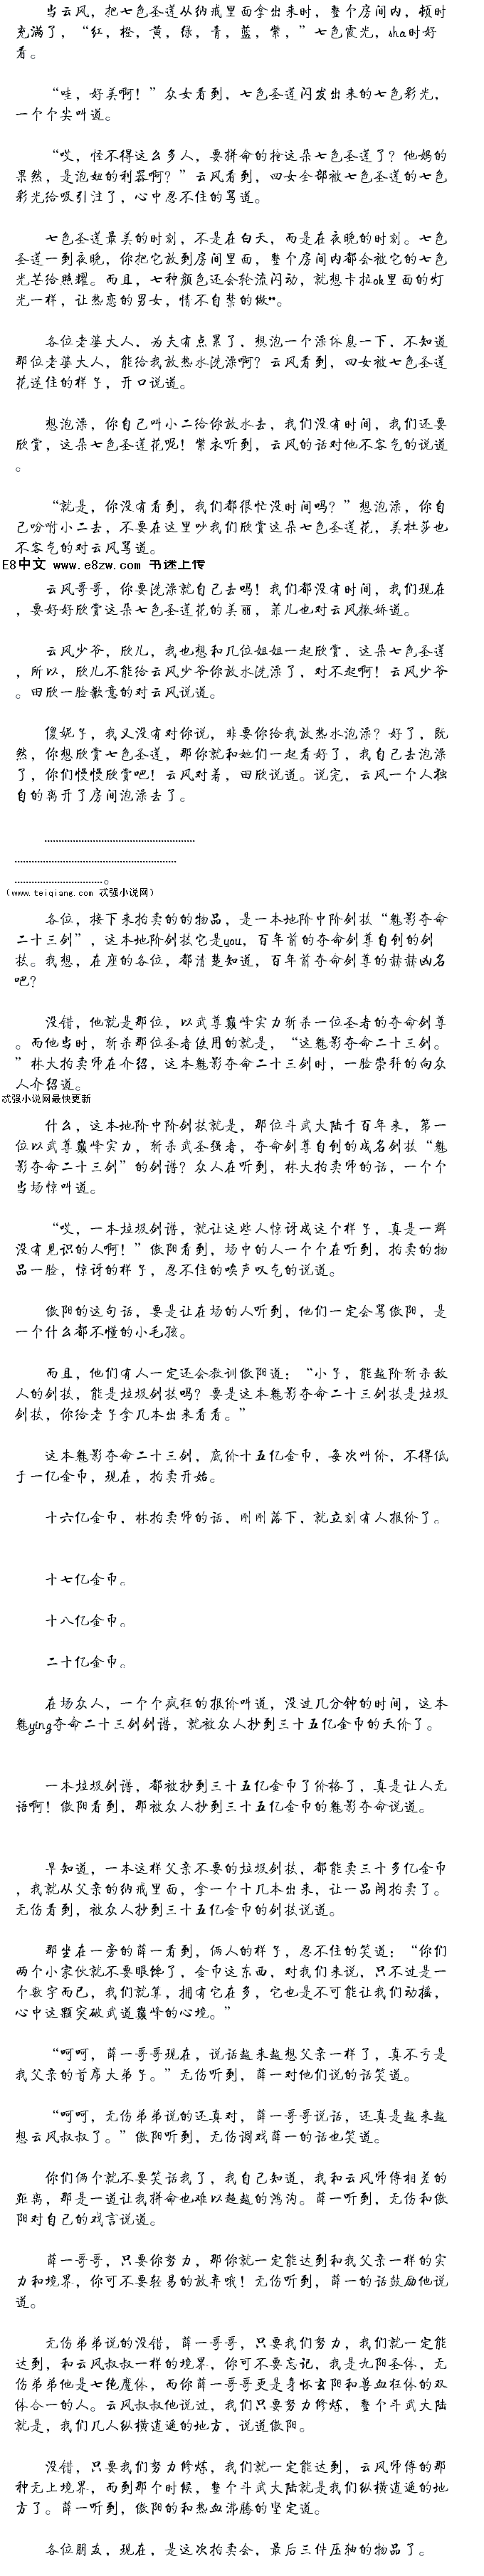 当云风，把七色圣莲从纳戒里面拿出来时，整个房间内，顿时
充满了，“红，橙，黄，绿，青，蓝，紫，”七色霞光，sha时好
看。
“哇，好美啊！”众女看到，七色圣莲闪发出来的七色彩光，
一个个尖叫道。
“哎，怪不得这么多人，要拼命的抢这朵七色圣莲了？他妈的
果然，是泡妞的利器啊？”云风看到，四女全部被七色圣莲的七色
彩光给吸引注了，心中忍不住的骂道。
七色圣莲最美的时刻，不是在白天，而是在夜晚的时刻。七色
圣莲一到夜晚，你把它放到房间里面，整个房间内都会被它的七色
光芒给照耀。而且，七种颜色还会轮流闪动，就想卡拉ok里面的灯
光一样，让热恋的男女，情不自禁的做**。
各位老婆大人，为夫有点累了，想泡一个澡休息一下，不知道
那位老婆大人，能给我放热水洗澡啊？云风看到，四女被七色圣莲
花迷住的样子，开口说道。
想泡澡，你自己叫小二给你放水去，我们没有时间，我们还要
欣赏，这朵七色圣莲花呢！紫衣听到，云风的话对他不客气的说道
。
“就是，你没有看到，我们都很忙没时间吗？”想泡澡，你自
己吩咐小二去，不要在这里吵我们欣赏这朵七色圣莲花，美杜莎也
不客气的对云风骂道。
E8中文 www.e8zw.com 书迷上传
云风哥哥，你要洗澡就自己去吗！我们都没有时间，我们现在
，要好好欣赏这朵七色圣莲花的美丽，菲儿也对云风撒娇道。
云风少爷，欣儿，我也想和几位姐姐一起欣赏，这朵七色圣莲
，所以，欣儿不能给云风少爷你放水洗澡了，对不起啊！云风少爷
。田欣一脸歉意的对云风说道。
傻妮子，我又没有对你说，非要你给我放热水泡澡？好了，既
然，你想欣赏七色圣莲，那你就和她们一起看好了，我自己去泡澡
了，你们慢慢欣赏吧！云风对着，田欣说道。说完，云风一个人独
自的离开了房间泡澡去了。
......................................................
..........................................................
................................。
（www.teiqiang.com 忒强小说网）
各位，接下来拍卖的的物品，是一本地阶中阶剑技“魅影夺命
二十三剑”，这本地阶剑技它是you，百年前的夺命剑尊自创的剑
技。我想，在座的各位，都清楚知道，百年前夺命剑尊的赫赫凶名
吧？
没错，他就是那位，以武尊巅峰实力斩杀一位圣者的夺命剑尊
。而他当时，斩杀那位圣者使用的就是，“这魅影夺命二十三剑。
”林大拍卖师在介绍，这本魅影夺命二十三剑时，一脸崇拜的向众
人介绍道。
忒强小说网最快更新
什么，这本地阶中阶剑技就是，那位斗武大陆千百年来，第一
位以武尊巅峰实力，斩杀武圣强者，夺命剑尊自创的成名剑技“魅
影夺命二十三剑”的剑谱？众人在听到，林大拍卖师的话，一个个
当场惊叫道。
“哎，一本垃圾剑谱，就让这些人惊讶成这个样子，真是一群
没有见识的人啊！”傲阳看到，场中的人一个个在听到，拍卖的物
品一脸，惊讶的样子，忍不住的唉声叹气的说道。
傲阳的这句话，要是让在场的人听到，他们一定会骂傲阳，是
一个什么都不懂的小毛孩。
而且，他们有人一定还会教训傲阳道：“小子，能越阶斩杀敌
人的剑技，能是垃圾剑技吗？要是这本魅影夺命二十三剑技是垃圾
剑技，你给老子拿几本出来看看。”
这本魅影夺命二十三剑，底价十五亿金币，每次叫价，不得低
于一亿金币，现在，拍卖开始。
十六亿金币，林拍卖师的话，刚刚落下，就立刻有人报价了。
十七亿金币。
十八亿金币。
二十亿金币。
在场众人，一个个疯狂的报价叫道，没过几分钟的时间，这本
魅ying夺命二十三剑剑谱，就被众人抄到三十五亿金币的天价了。
一本垃圾剑谱，都被抄到三十五亿金币了价格了，真是让人无
语啊！傲阳看到，那被众人抄到三十五亿金币的魅影夺命说道。
早知道，一本这样父亲不要的垃圾剑技，都能卖三十多亿金币
，我就从父亲的纳戒里面，拿一个十几本出来，让一品阁拍卖了。
无伤看到，被众人抄到三十五亿金币的剑技说道。
那坐在一旁的薛一看到，俩人的样子，忍不住的笑道：“你们
两个小家伙就不要眼馋了，金币这东西，对我们来说，只不过是一
个数字而已，我们就算，拥有它在多，它也是不可能让我们动摇，
心中这颗突破武道巅峰的心境。”
“呵呵，薛一哥哥现在，说话越来越想父亲一样了，真不亏是
我父亲的首席大弟子。”无伤听到，薛一对他们说的话笑道。
“呵呵，无伤弟弟说的还真对，薛一哥哥说话，还真是越来越
想云风叔叔了。”傲阳听到，无伤调戏薛一的话也笑道。
你们俩个就不要笑话我了，我自己知道，我和云风师傅相差的
距离，那是一道让我拼命也难以超越的鸿沟。薛一听到，无伤和傲
阳对自己的戏言说道。
薛一哥哥，只要你努力，那你就一定能达到和我父亲一样的实
力和境界，你可不要轻易的放弃哦！无伤听到，薛一的话鼓励他说
道。
无伤弟弟说的没错，薛一哥哥，只要我们努力，我们就一定能
达到，和云风叔叔一样的境界，你可不要忘记，我是九阳圣体，无
伤弟弟他是七绝魔体，而你薛一哥哥更是身怀玄阳和兽血狂体的双
体合一的人。云风叔叔他说过，我们只要努力修炼，整个斗武大陆
就是，我们几人纵横逍遥的地方，说道傲阳。
没错，只要我们努力修炼，我们就一定能达到，云风师傅的那
种无上境界，而到那个时候，整个斗武大陆就是我们纵横逍遥的地
方了。薛一听到，傲阳的和热血沸腾的坚定道。
各位朋友，现在，是这次拍卖会，最后三件压轴的物品了。